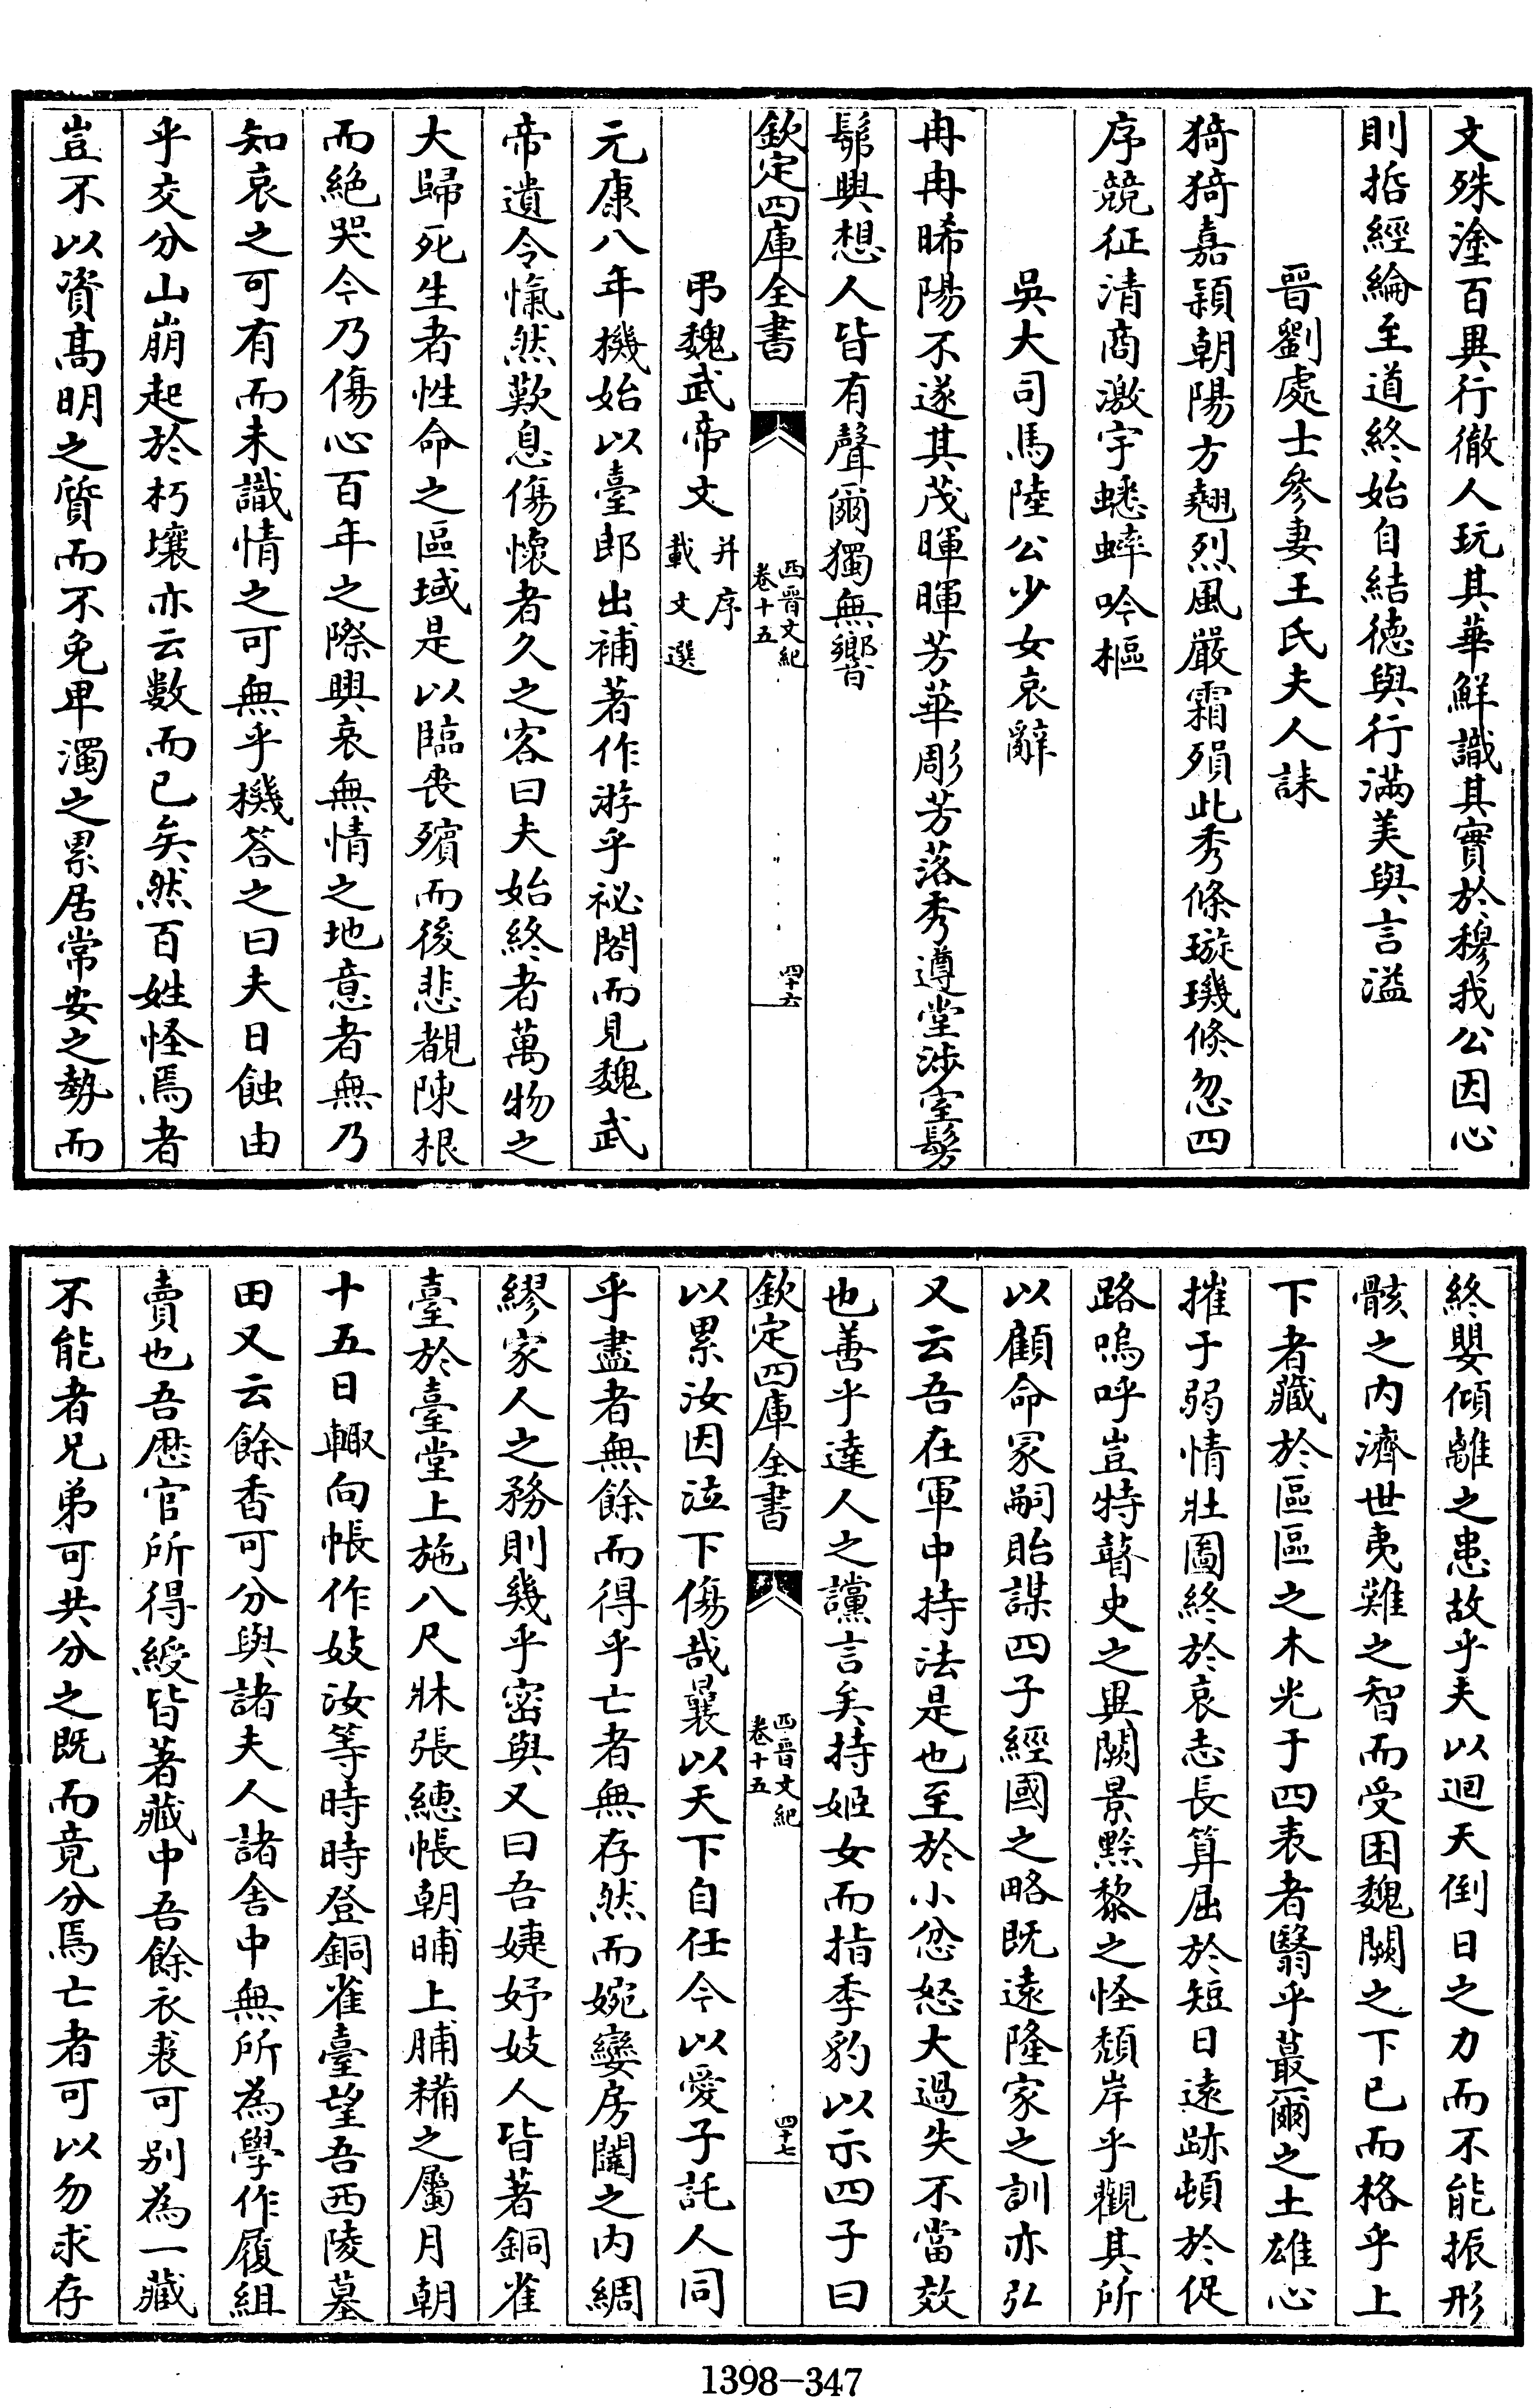 文殊塗百異行徹人玩其華鮮識其實於穆我公因心
則括經綸至道終始自結徳與行滿美與言溢
晉劉處士參妻王氏夫人誄
猗猗嘉穎朝陽方翹烈風嚴霜殞此秀條璇璣倐忽四
序競征清商激宇蟋蟀吟樞
吳大司馬陸公少女哀辭
冉冉晞陽不遂其茂暉暉芳華彫芳落秀遵堂涉室髣
髴興想人皆有聲爾獨無響
欽定四庫全書
西晉文紀
卷十五
四十六
弔魏武帝文
并序
載文選
元康八年機始以臺郎出補著作游乎祕閣而見魏武
帝遺令愾然歎息傷懷者久之客曰夫始終者萬物之
大歸死生者性命之區域是以臨喪殯而後悲覩陳根
而絶哭今乃傷心百年之際興哀無情之地意者無乃
知哀之可有而未識情之可無乎機答之曰夫日蝕由
乎交分山崩起於朽壤亦云數而已矣然百姓怪焉者
豈不以資髙明之質而不免卑濁之累居常安之勢而
終嬰傾離之患故乎夫以迴天倒日之力而不能振形
骸之内濟世夷難之智而受困魏闕之下已而格乎上
下者藏於區區之木光于四表者翳乎蕞爾之土雄心
摧于弱情壯圖終於哀志長算屈於短日遠跡頓於促
路嗚呼豈特瞽史之異闕景黙黎之怪頽岸乎觀其所
以顧命冡嗣貽謀四子經國之略既逺隆家之訓亦弘
又云吾在軍中持法是也至於小忿怒大過失不當效
也善乎達人之讜言矣持姬女而指季豹以示四子曰
欽定四庫全書
西晉文紀
卷十五
四十七
以累汝因泣下傷哉曩以天下自任今以愛子託人同
乎盡者無餘而得乎亡者無存然而婉孌房闥之内綢
繆家人之務則幾乎密與又曰吾婕妤妓人皆著銅雀
臺於臺堂上施八尺牀張繐帳朝晡上脯糒之屬月朝
十五日輙向帳作妓汝等時時登銅雀臺望吾西陵墓
田又云餘香可分與諸夫人諸舍中無所為學作履組
賣也吾厯官所得綬皆著藏中吾餘衣裘可别為一藏
不能者兄弟可共分之既而竟分焉亡者可以勿求存
1398-347